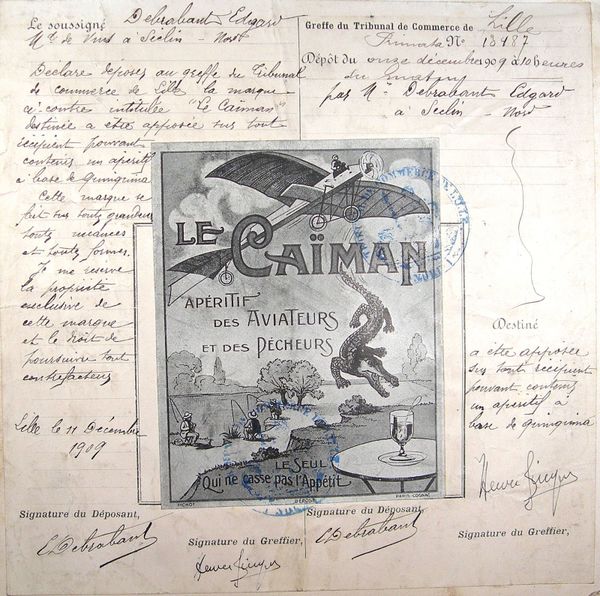 Le soussigné Debrabant Edgard
Md de Vins à Seclin - Nord
Déclare déposer au greffe du Tribunal
de commerce de Lille la marque
ci contre intitulée "Le Caïman"
destinée a être apposée sur tout
récipient pouvant
contenir un apéritif
à base de quinquina
Cette marque se
fait sur toutes grandeurs
toutes nuances
et toutes formes.
Je me réserve
la propriété
exclusive de
cette marque
et le droit de
poursuivre tout
contrefacteur
Lille le 11 Décembre
1909
Signature du Déposant,
E Debrabant
Greffe du Tribunal de Commerce de Lille
No 13487
Dépôt du onze décembre 1909 à 10 heures
du matin
par Mr Debrabant Edgard
à Seclin - Nord
LE CAÏMAN
APÉRITIF
DES AVIATEURS
ET DES PÊCHEURS
LE SEUL
Qui ne casse pas l'Appétit
PICHOT
DÉPOSÉ
PARIS-COGNAC
Destiné
a être apposée
sur tout récipient
pouvant contenir
un apéritif à
base de quinquina
Signature du Greffier,
Signature du Déposant,
E Debrabant
Signature du Greffier,